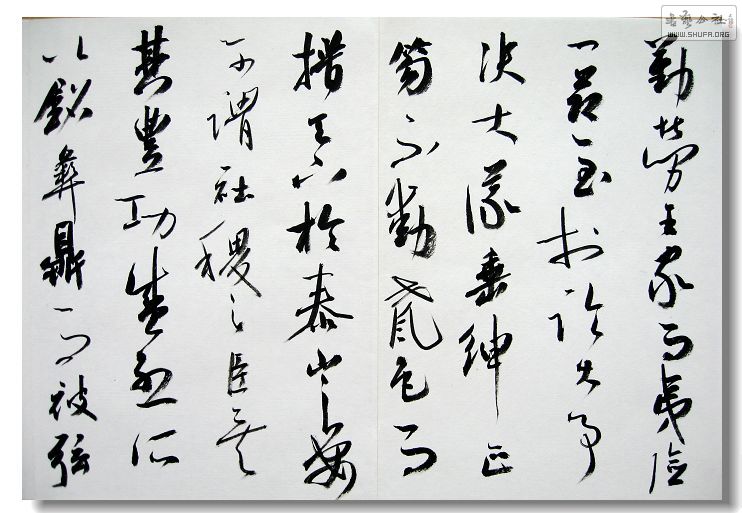 書藝公社
WWW.SHUFA.ORG
勤勞王家而夷險
一節至於臨大事
決大議垂紳正
笏不動聲色而
措天下於泰山之安
可謂社稷之臣矣
其豐功盛烈所
以銘彝鼎而被弦